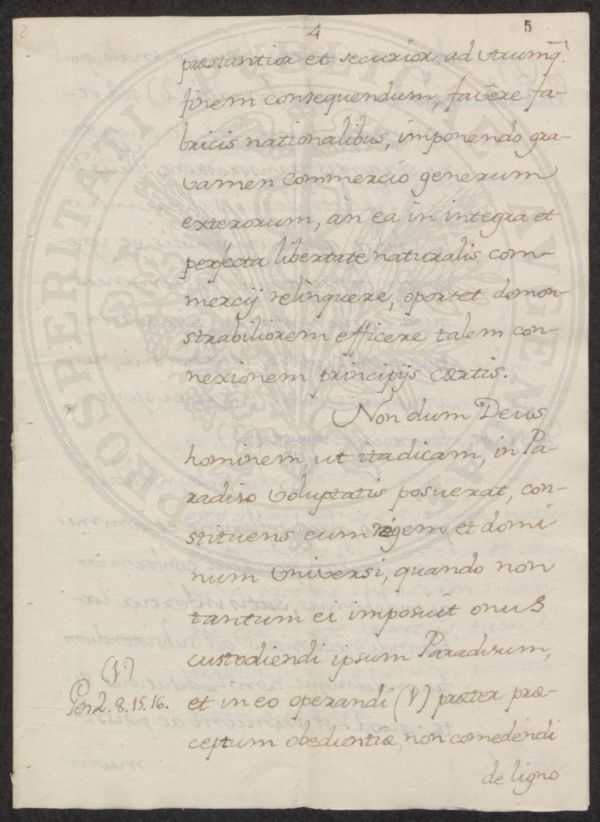 4
5
præstantior et securior ad utrumq̃.
finem consequendum, favēre fa-
bricis nationalibus, imponendo gra-
vamen commercio generum
exterorum, an ea in integra et
perfecta libertate naturalis com-
mercij relinquere, oportet demon-
strabiliorem efficere talem con-
nexionem principijs cærtis.
Non dum Deus
hominem, ut ita dicam, in Pa-
radiso voluptatis posuerat, con-
stituens eum regem et domi
num universi, quando non
tantum ei imposuit onus
custodiendi ipsum Paradisum,
(1)
Gen 2. 8. 15. 16.
et in eo operandi (1) præter præ-
ceptum obedientiæ, non comedendi
de ligno
PROSPERITATI PUBLICAE AUGENDAE